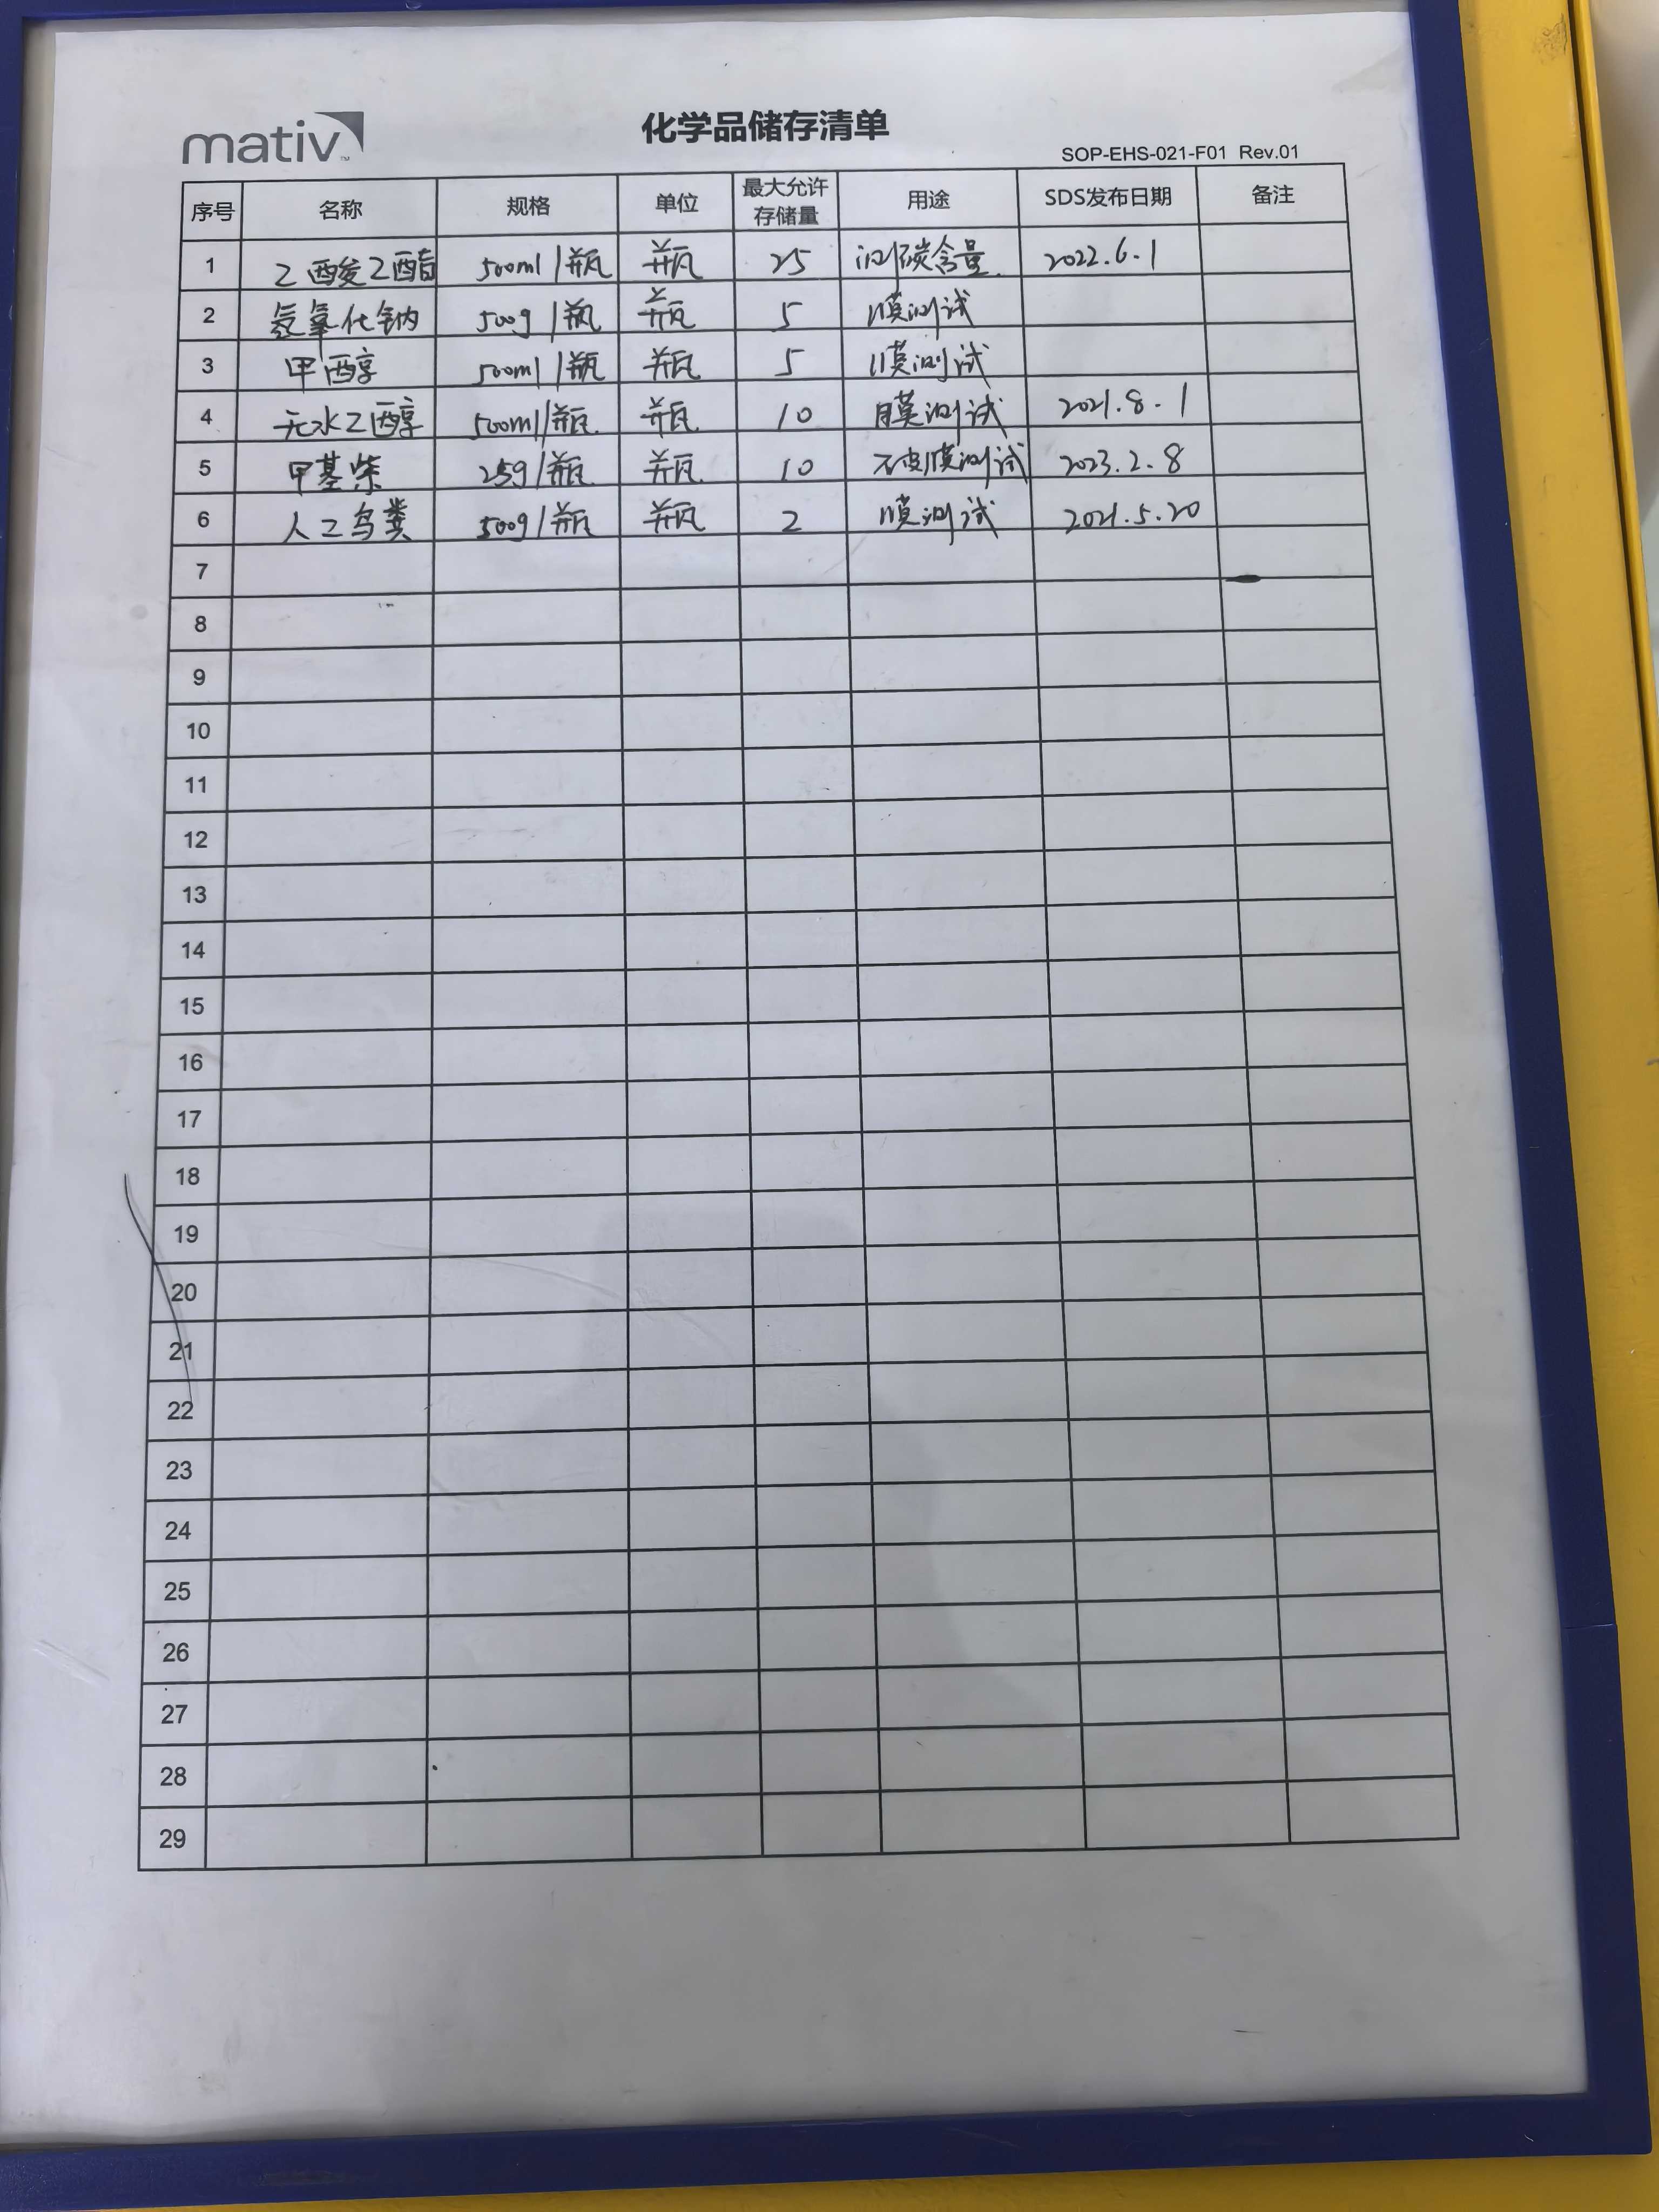 mativ™
化学品储存清单
SOP-EHS-021-F01 Rev.01
序号 名称 规格 单位 最大允许存储量 用途 SDS发布日期 备注
1 乙酸乙酯 500ml/瓶 瓶 25 测碳含量 2022.6.1
2 氢氧化钠 500g/瓶 瓶 5 膜测试
3 甲醇 500ml/瓶 瓶 5 膜测试
4 无水乙醇 500ml/瓶 瓶 10 膜测试 2021.8.1
5 甲基紫 25g/瓶 瓶 10 膜测试 2023.2.8
6 人工鸟粪 500g/瓶 瓶 2 膜测试 2021.5.20
7
8
9
10
11
12
13
14
15
16
17
18
19
20
21
22
23
24
25
26
27
28
29